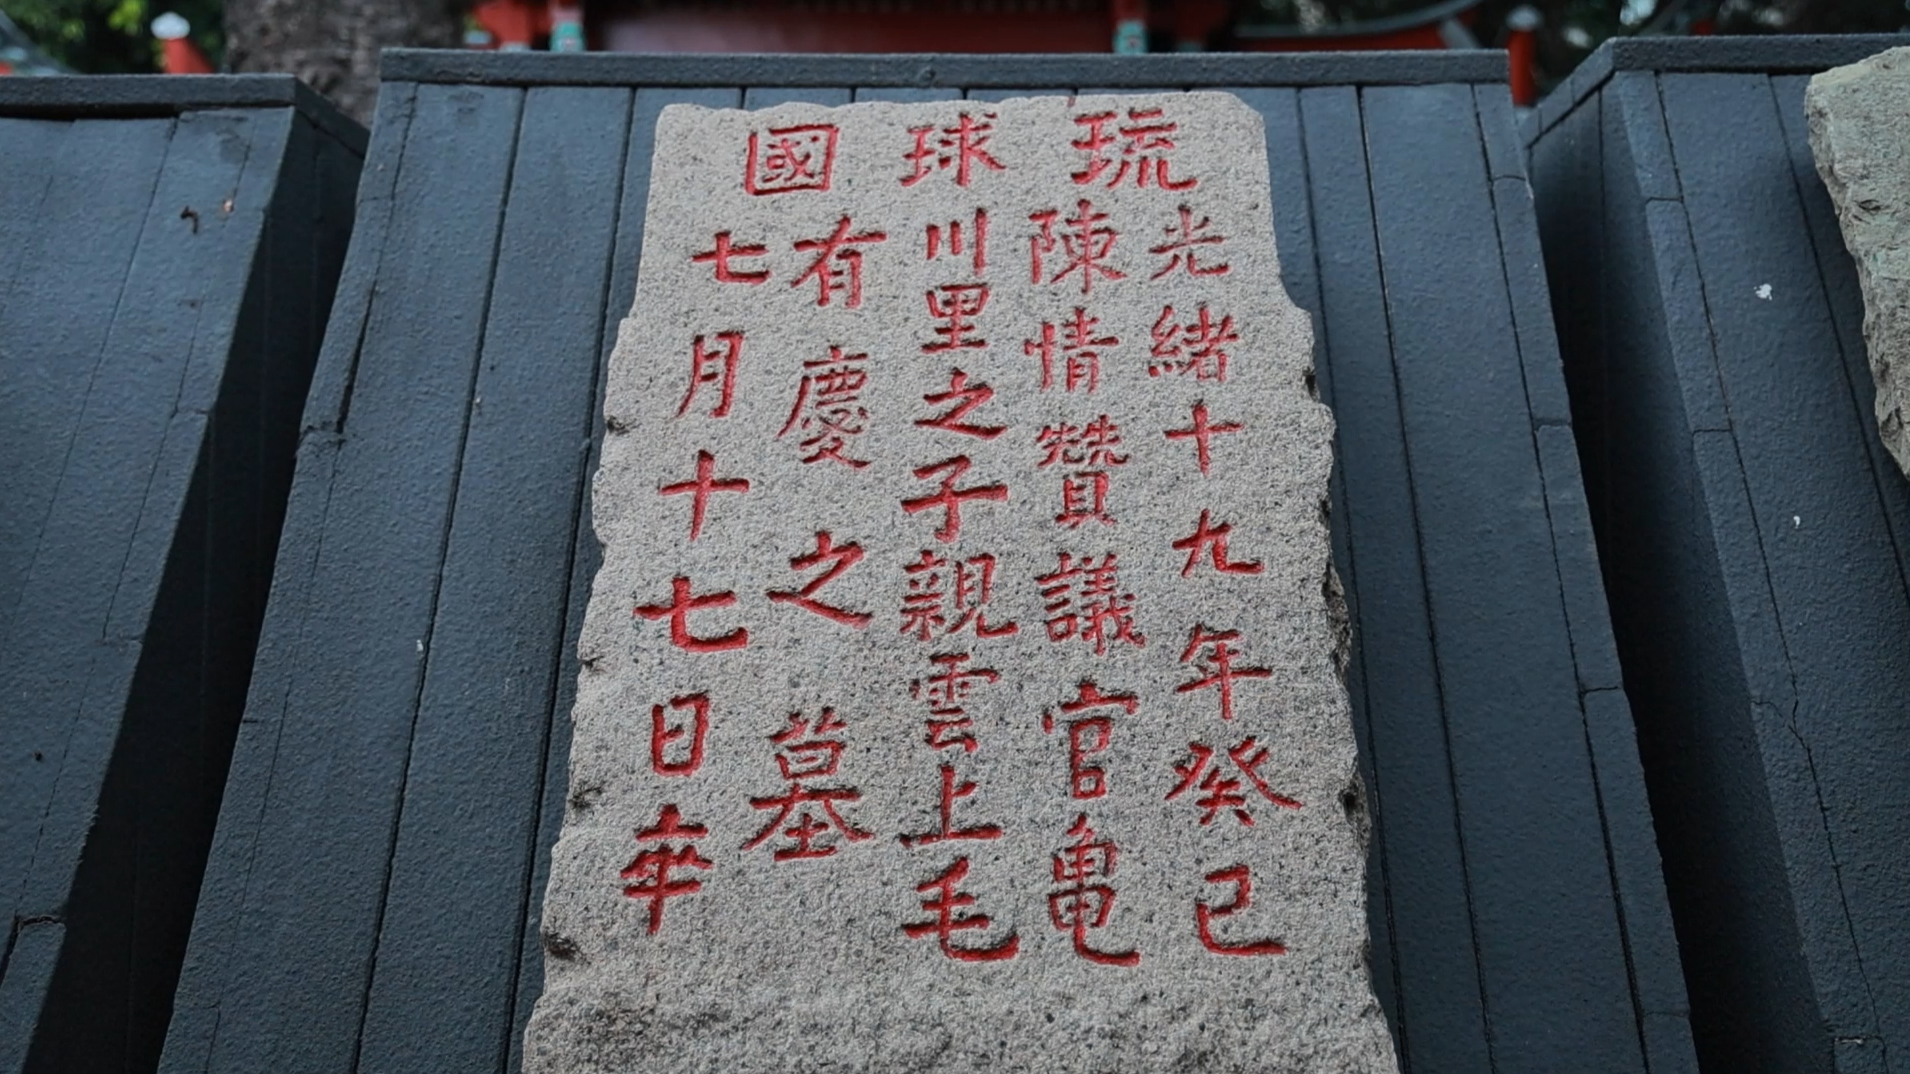 琉球國
光緒十九年癸巳
陳情贊議官亀
川里之子親雲上毛
有慶之墓
七月十七日卆